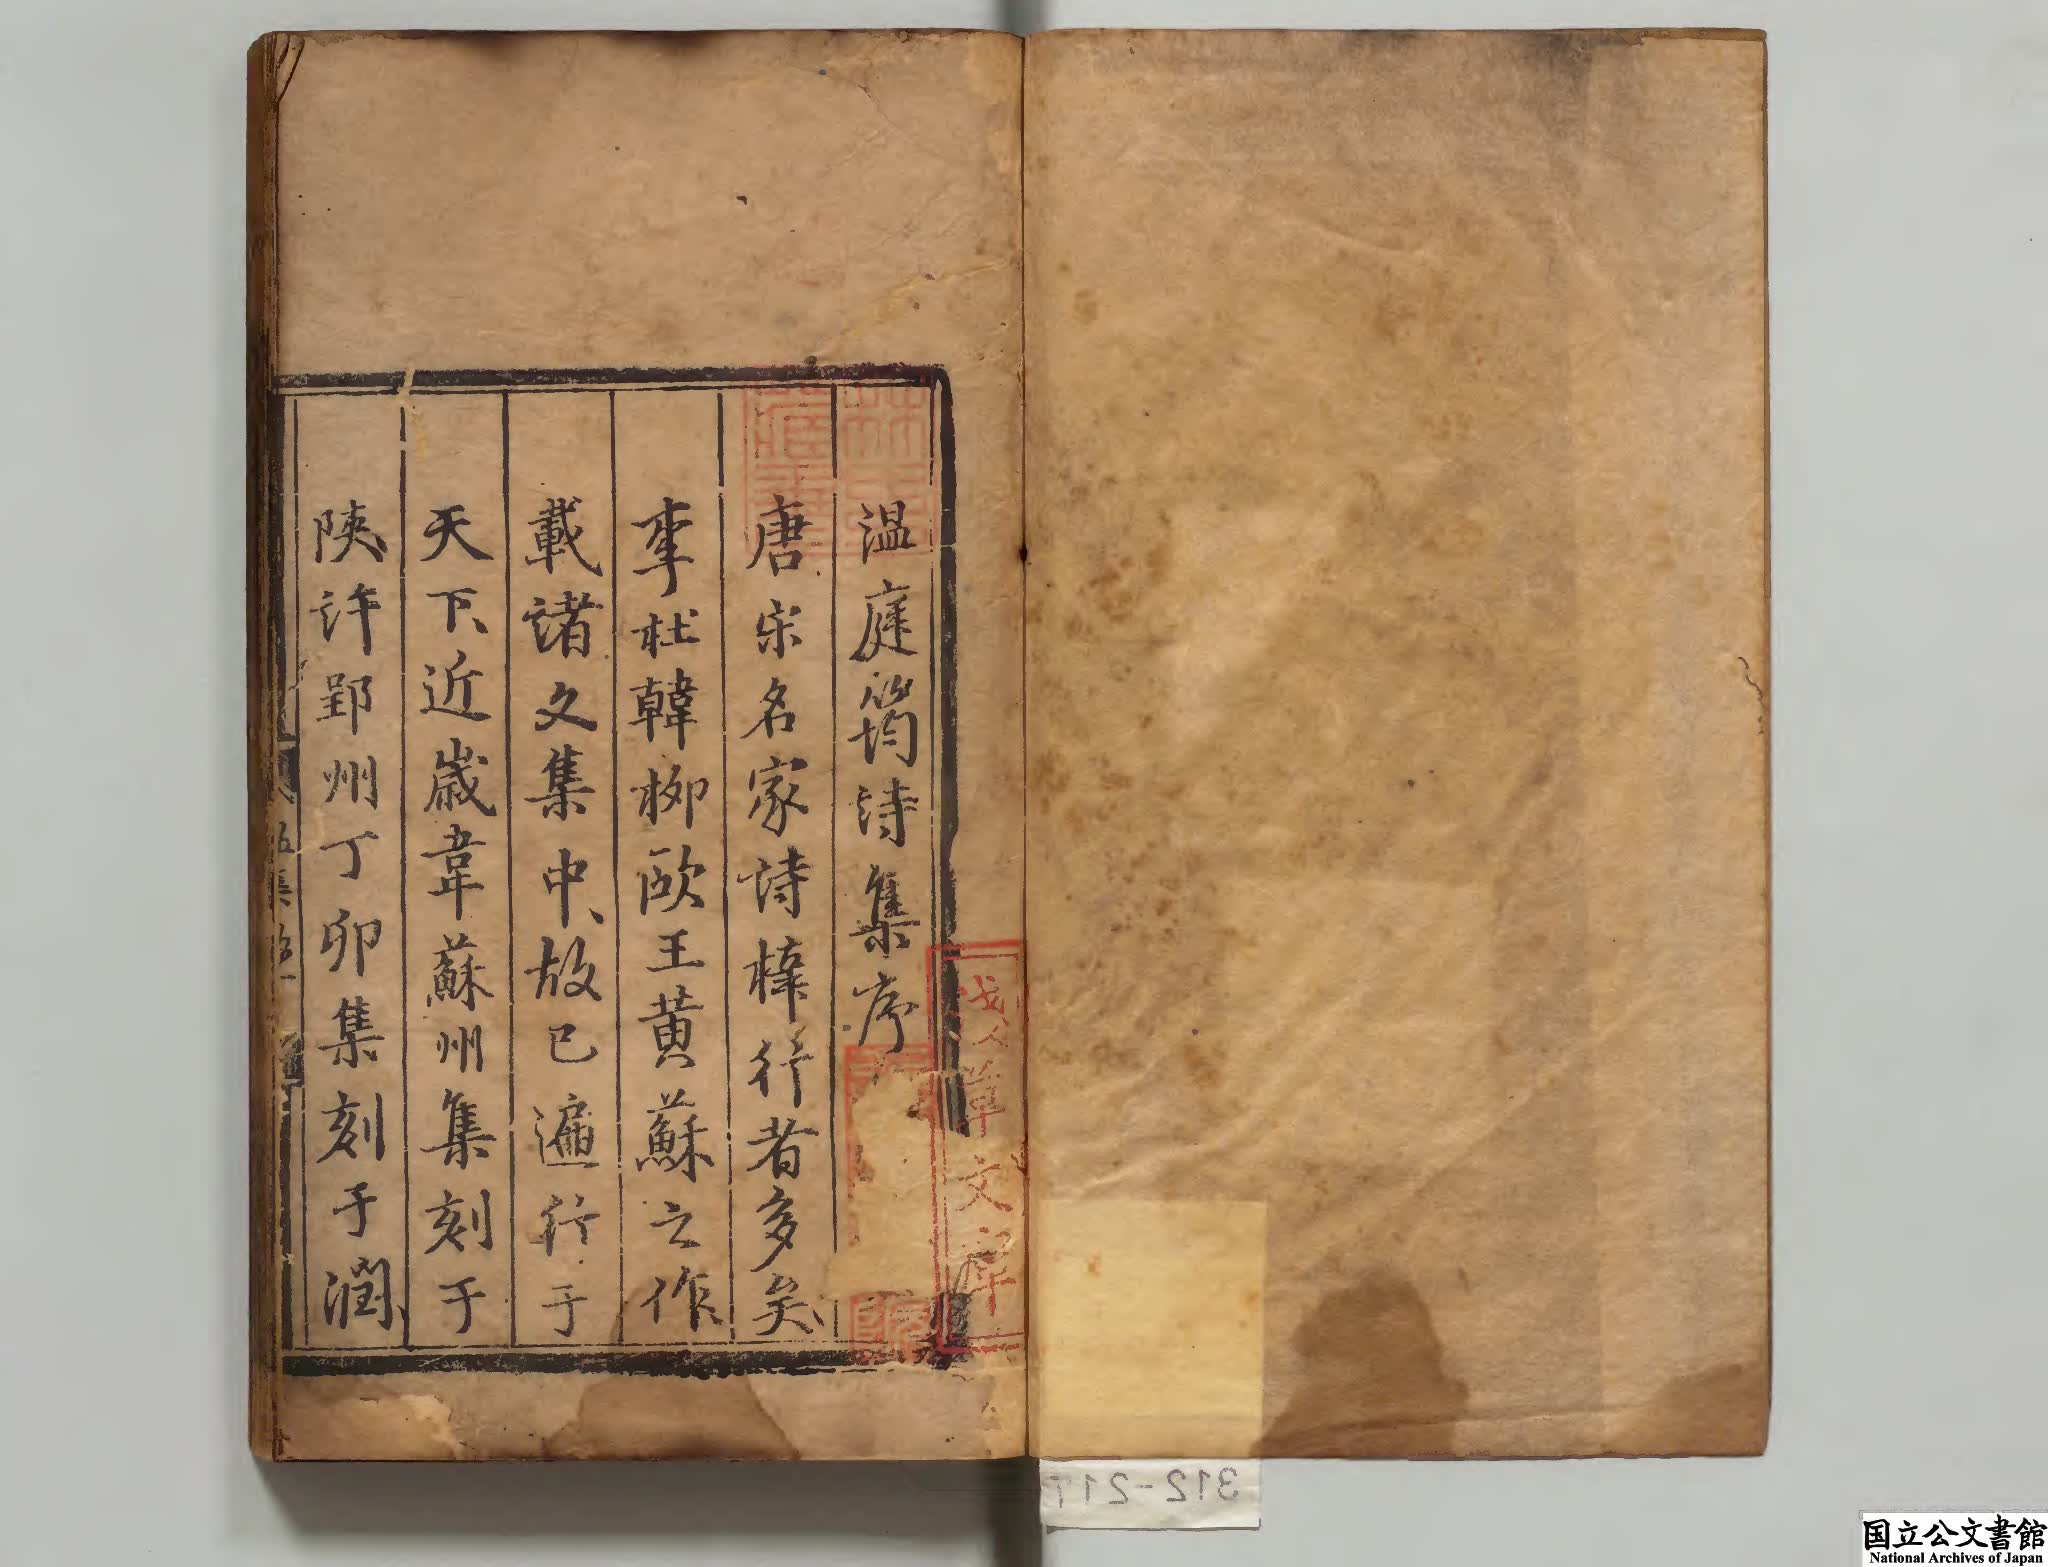 温庭筠詩集序
唐宋名家詩梓行者多矣、
李杜韓柳歐王黄蘇之作
載諸文集中、故已遍行于
天下、近歳韋蘇州集刻于
陝、許郢州丁卯集刻于潤、
林氏
藏書
浅草文庫
312-217
国立公文書館
National Archives of Japan